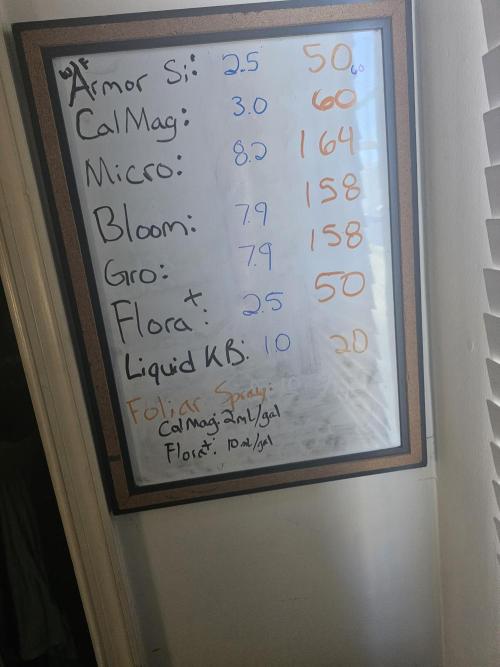 Armor Si: 2.5 50
CalMag: 3.0 60
Micro: 8.2 164
Bloom: 7.9 158
Gro: 7.9 158
Flora+: 2.5 50
Liquid KB: 10 20
Foliar Spray:
CalMag: 2mL/gal
Flora+: 10mL/gal